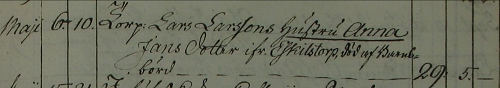 Maji 6. 10. Torp: Lars Larssons Hustru Anna
Jans Dotter ifr. Eskilstorp, död af Barns-
börd 29. 5.